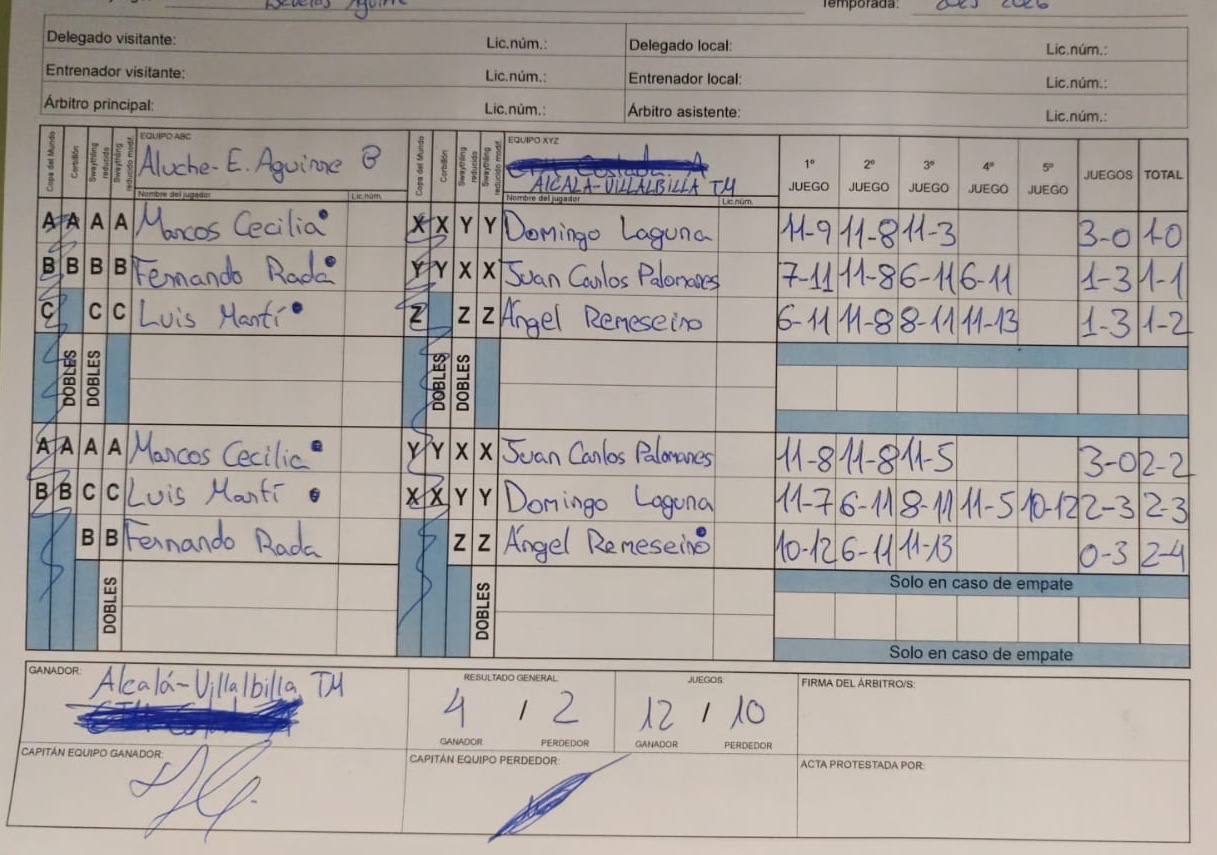 Aguirre
Temporada: 2025 2026
Delegado visitante: Lic.núm.: Delegado local: Lic.núm.:
Entrenador visitante: Lic.núm.: Entrenador local: Lic.núm.:
Árbitro principal: Lic.núm.: Árbitro asistente: Lic.núm.:
Copa del Mundo Corbillón Swaythling reducido Swaythling reducido modif. EQUIPO ABC Aluche-E. Aguirre B Nombre del jugador Lic.núm. Copa del Mundo Corbillón Swaythling reducido Swaythling reducido modif. EQUIPO XYZ ALCALA-VILLALBILLA TM Nombre del jugador Lic.núm. 1º JUEGO 2º JUEGO 3º JUEGO 4º JUEGO 5º JUEGO JUEGOS TOTAL
A A A A Marcos Cecilia X X Y Y Domingo Laguna 11-9 11-8 11-3 3-0 1-0
B B B B Fernando Rada Y Y X X Juan Carlos Palomares 7-11 11-8 6-11 6-11 1-3 1-1
C C C Luis Martí Z Z Z Ángel Remeseiro 6-11 11-8 8-11 11-13 1-3 1-2
DOBLES DOBLES DOBLES DOBLES
A A A A Marcos Cecilia Y Y X X Juan Carlos Palomares 11-8 11-8 11-5 3-0 2-2
B B C C Luis Martí X X Y Y Domingo Laguna 11-7 6-11 8-11 11-5 10-12 2-3 2-3
B B Fernando Rada Z Z Ángel Remeseiro 10-12 6-11 11-13 0-3 2-4
Solo en caso de empate
DOBLES DOBLES
Solo en caso de empate
GANADOR: Alcalá-Villalbilla TM RESULTADO GENERAL JUEGOS FIRMA DEL ÁRBITRO/S:
4 / 2 12 / 10
GANADOR PERDEDOR GANADOR PERDEDOR
CAPITÁN EQUIPO GANADOR: CAPITÁN EQUIPO PERDEDOR: ACTA PROTESTADA POR: